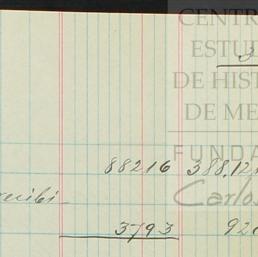 CENTR
ESTU
DE HIST
DE ME
FUNDA
Carlos
3
88216 388,12
recibi
3793 92